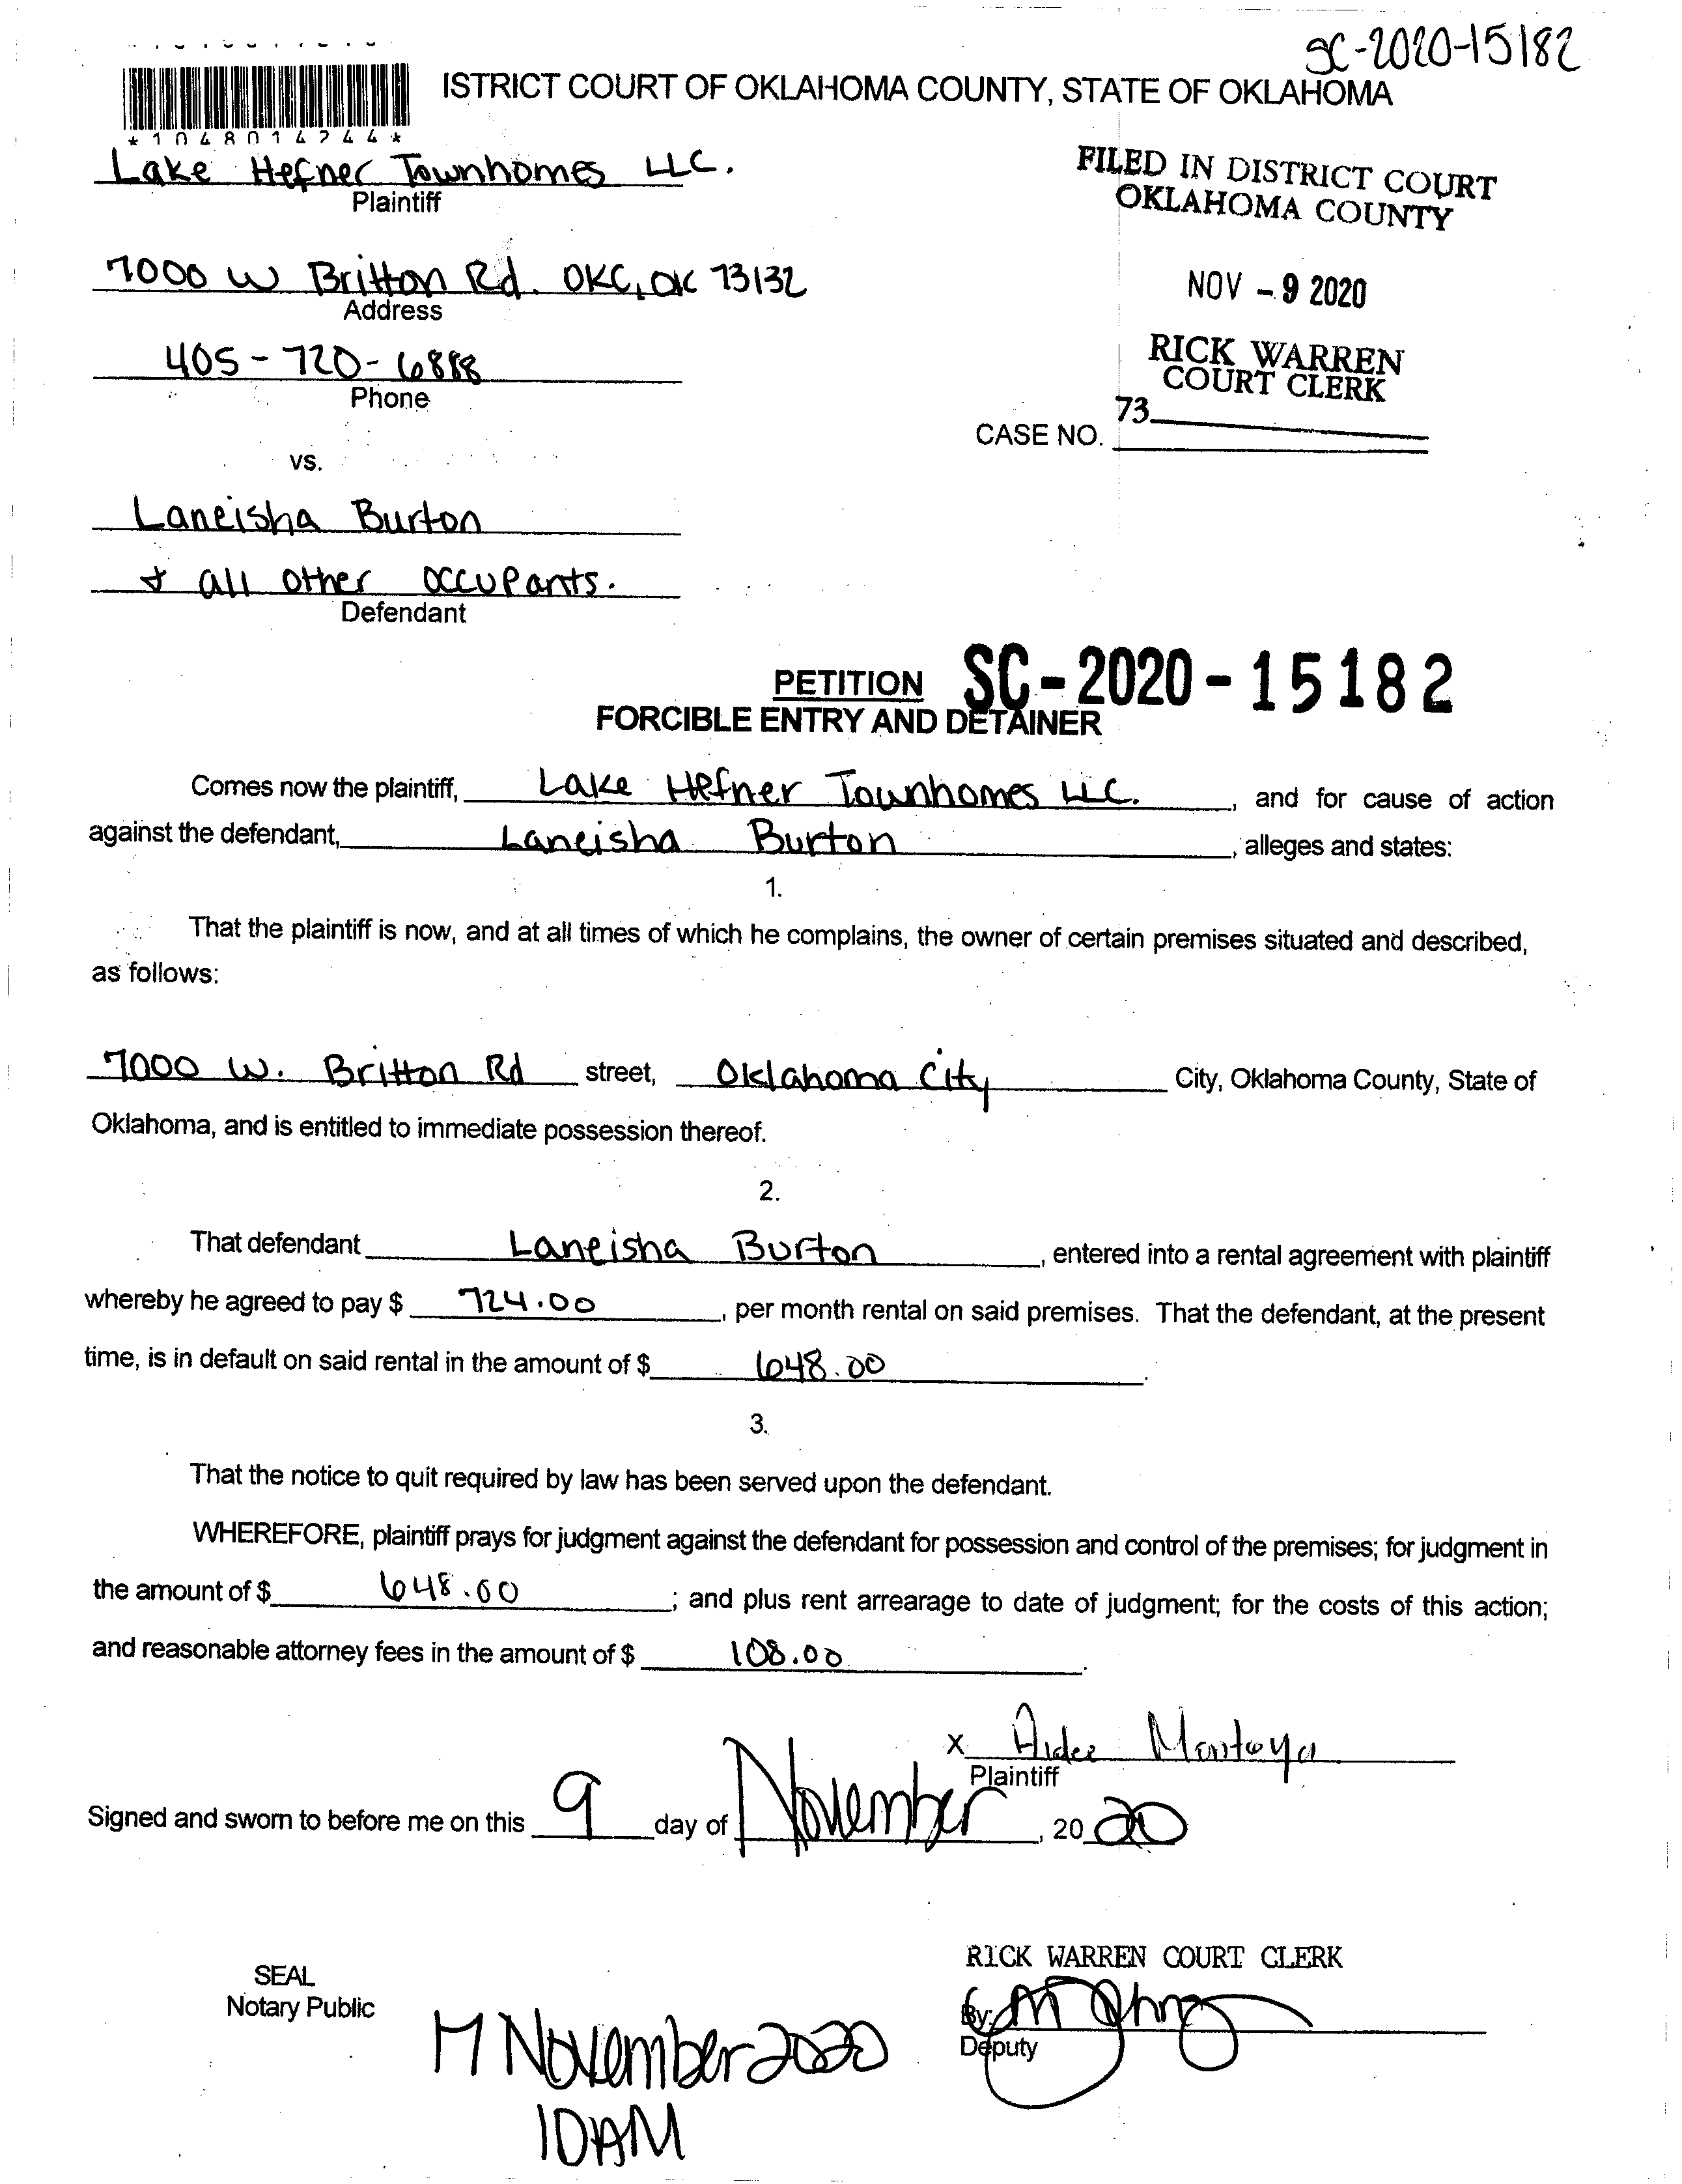 SC-2020-15182
ISTRICT COURT OF OKLAHOMA COUNTY, STATE OF OKLAHOMA
* 1 0 4 8 0 1 4 2 4 4 *
Lake Hefner Townhomes LLC.
Plaintiff
FILED IN DISTRICT COURT
OKLAHOMA COUNTY
7000 W Britton Rd. OKC, OK 73132
Address
NOV - 9 2020
405-720-6888
Phone
RICK WARREN
COURT CLERK
73
CASE NO.
vs.
Laneisha Burton
& all other occupants.
Defendant
PETITION SC-2020-15182
FORCIBLE ENTRY AND DETAINER
Comes now the plaintiff, Lake Hefner Townhomes LLC. , and for cause of action
against the defendant, Laneisha Burton , alleges and states:
1.
That the plaintiff is now, and at all times of which he complains, the owner of certain premises situated and described,
as follows:
7000 W. Britton Rd street, Oklahoma City City, Oklahoma County, State of
Oklahoma, and is entitled to immediate possession thereof.
2.
That defendant Laneisha Burton , entered into a rental agreement with plaintiff
whereby he agreed to pay $ 724.00 , per month rental on said premises. That the defendant, at the present
time, is in default on said rental in the amount of $ 648.00 .
3.
That the notice to quit required by law has been served upon the defendant.
WHEREFORE, plaintiff prays for judgment against the defendant for possession and control of the premises; for judgment in
the amount of $ 648.00 ; and plus rent arrearage to date of judgment; for the costs of this action;
and reasonable attorney fees in the amount of $ 108.00 .
x Aidee Montoya
Plaintiff
Signed and sworn to before me on this 9 day of November , 20 20
RICK WARREN COURT CLERK
SEAL
Notary Public
By:
Deputy
17 November 2020
10AM